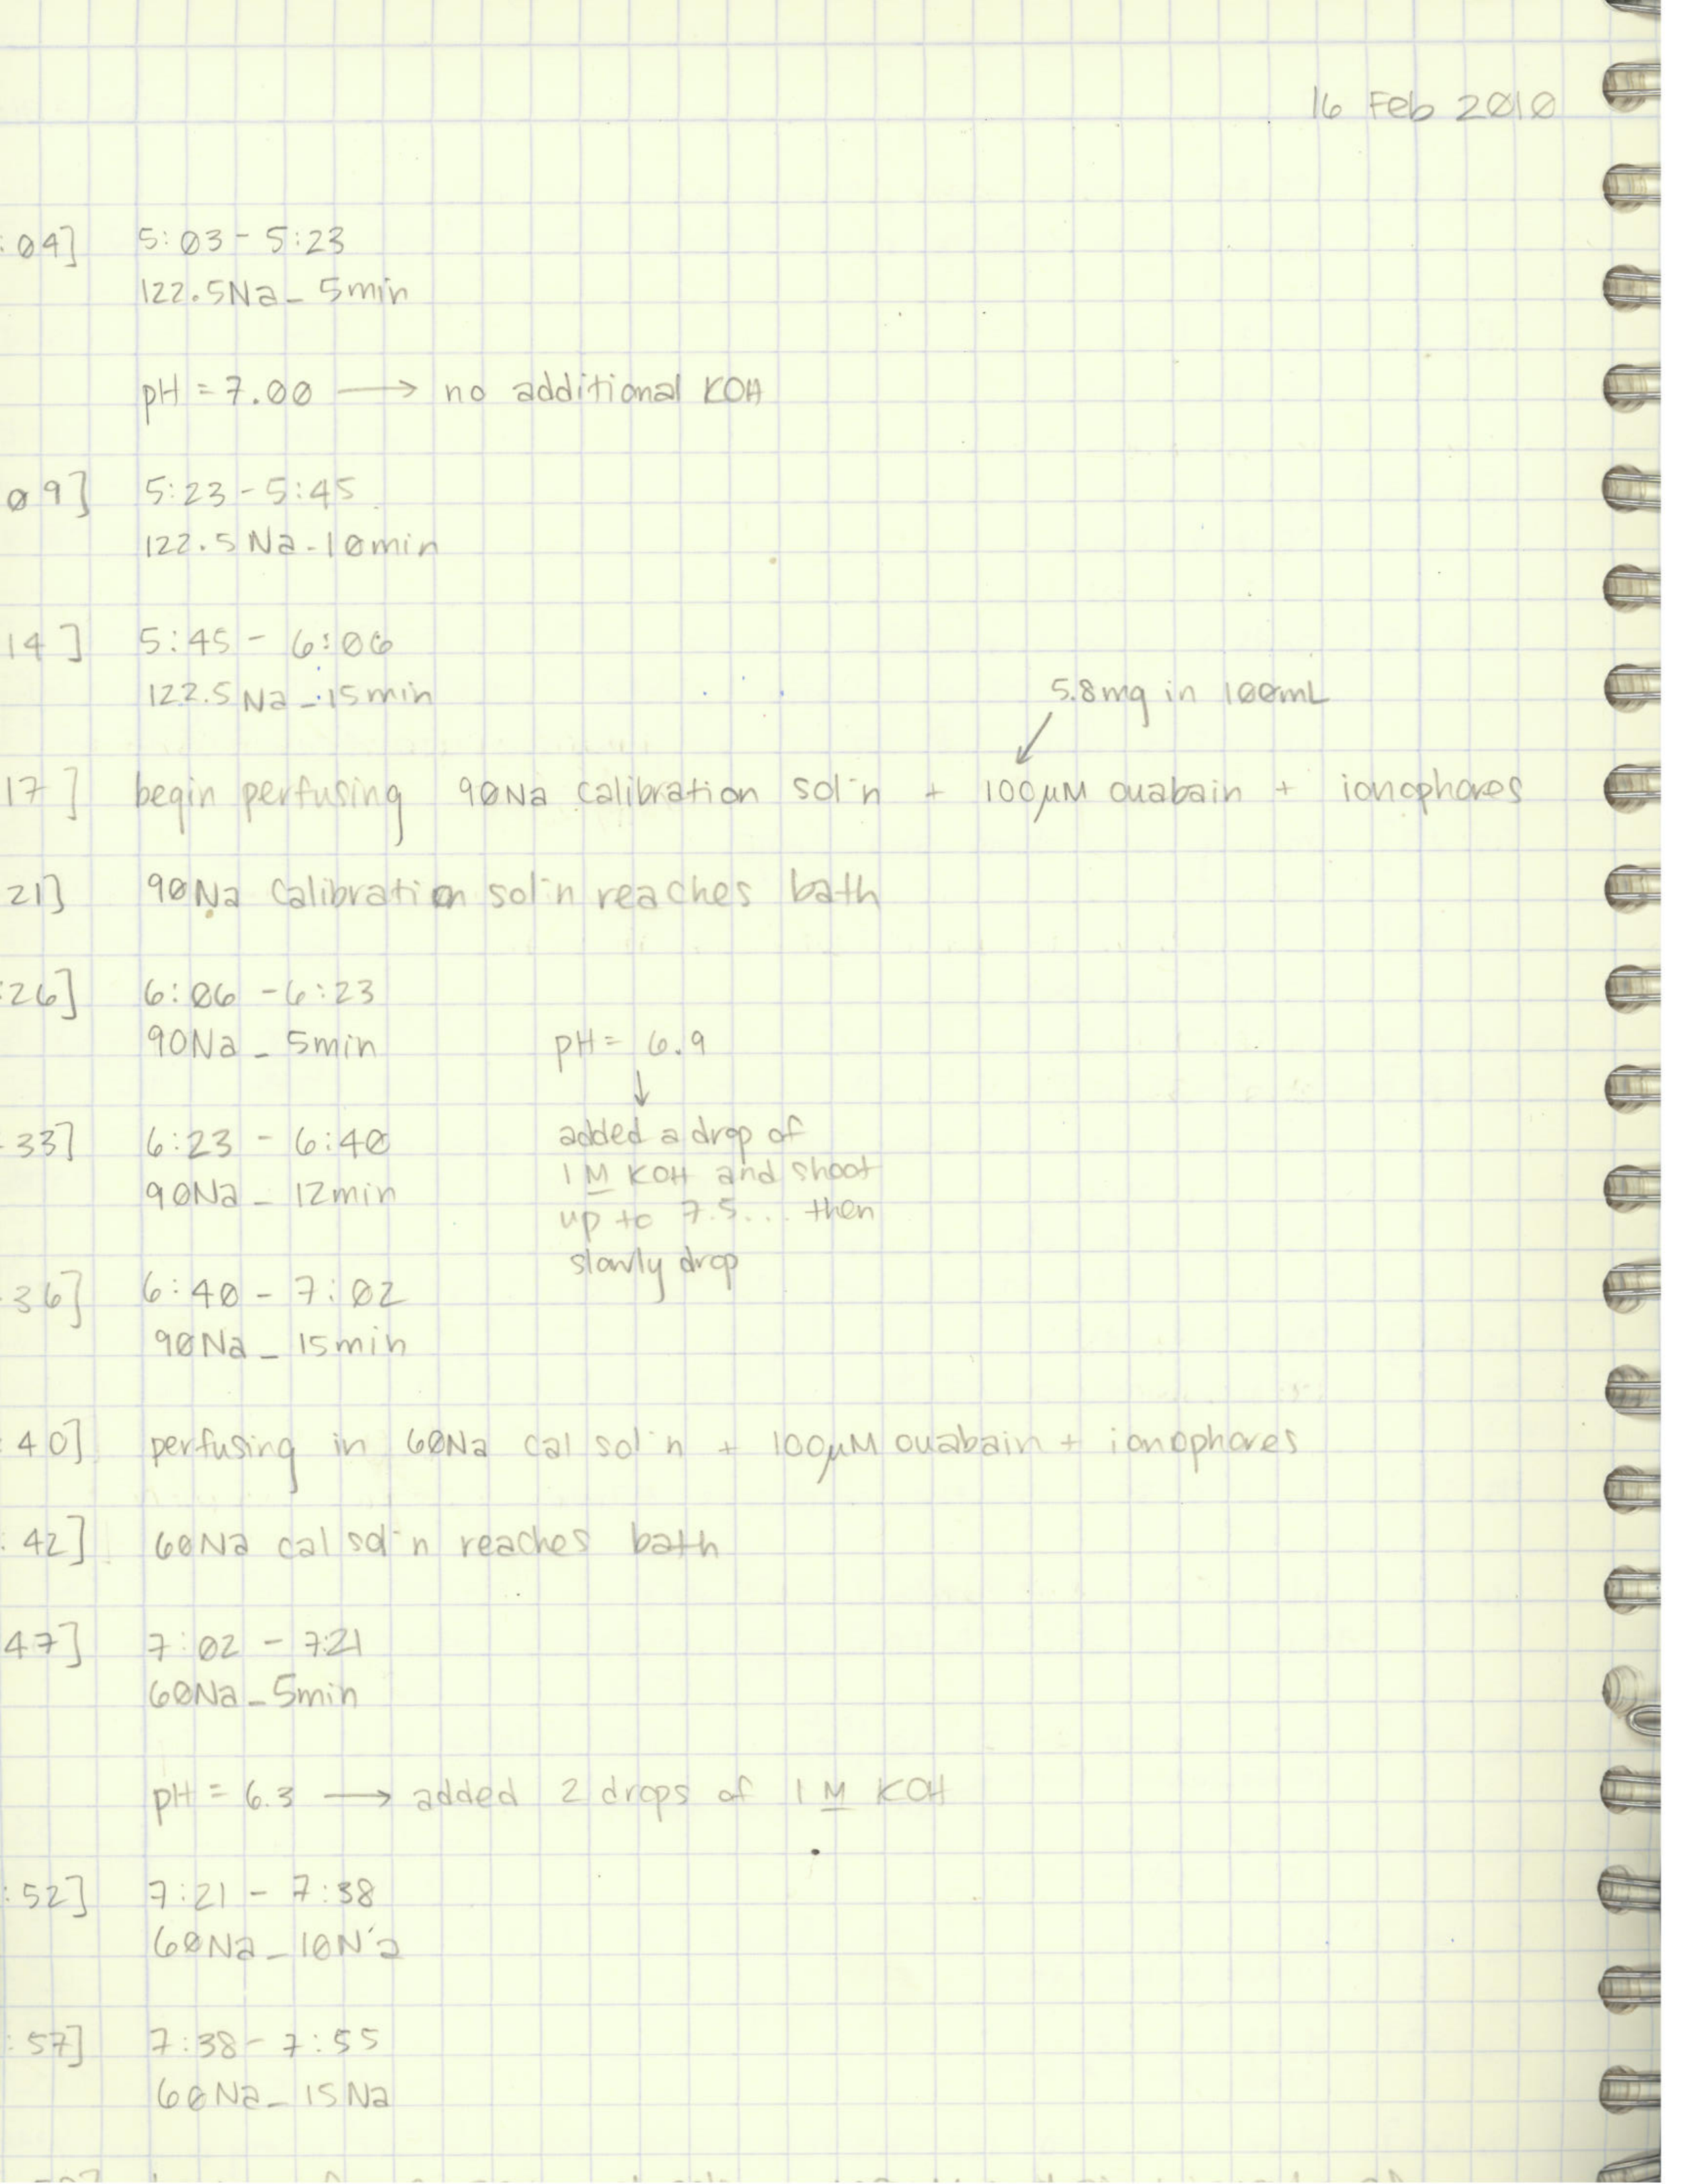 16 Feb 2010
:04] 5:03 - 5:23
122.5Na_ 5min
pH = 7.00 → no additional KOH
09] 5:23 - 5:45
122.5 Na_10min
14] 5:45 - 6:06
122.5 Na_15min
5.8mg in 100mL
17] begin perfusing 90Na calibration sol'n + 100µM ouabain + ionophores
21] 90Na calibration sol'n reaches bath
:26] 6:06 - 6:23
90Na_ 5min
pH = 6.9
↓
33] 6:23 - 6:40
90Na_ 12min
added a drop of
1 M KOH and shoot
up to 7.5... then
slowly drop
36] 6:40 - 7:02
90Na_ 15min
:40] perfusing in 60Na cal sol'n + 100µM ouabain + ionophores
:42] 60Na cal sol'n reaches bath
47] 7:02 - 7:21
60Na_5min
pH = 6.3 → added 2 drops of 1 M KOH
:52] 7:21 - 7:38
60Na_10Na
:57] 7:38 - 7:55
60Na_ 15Na